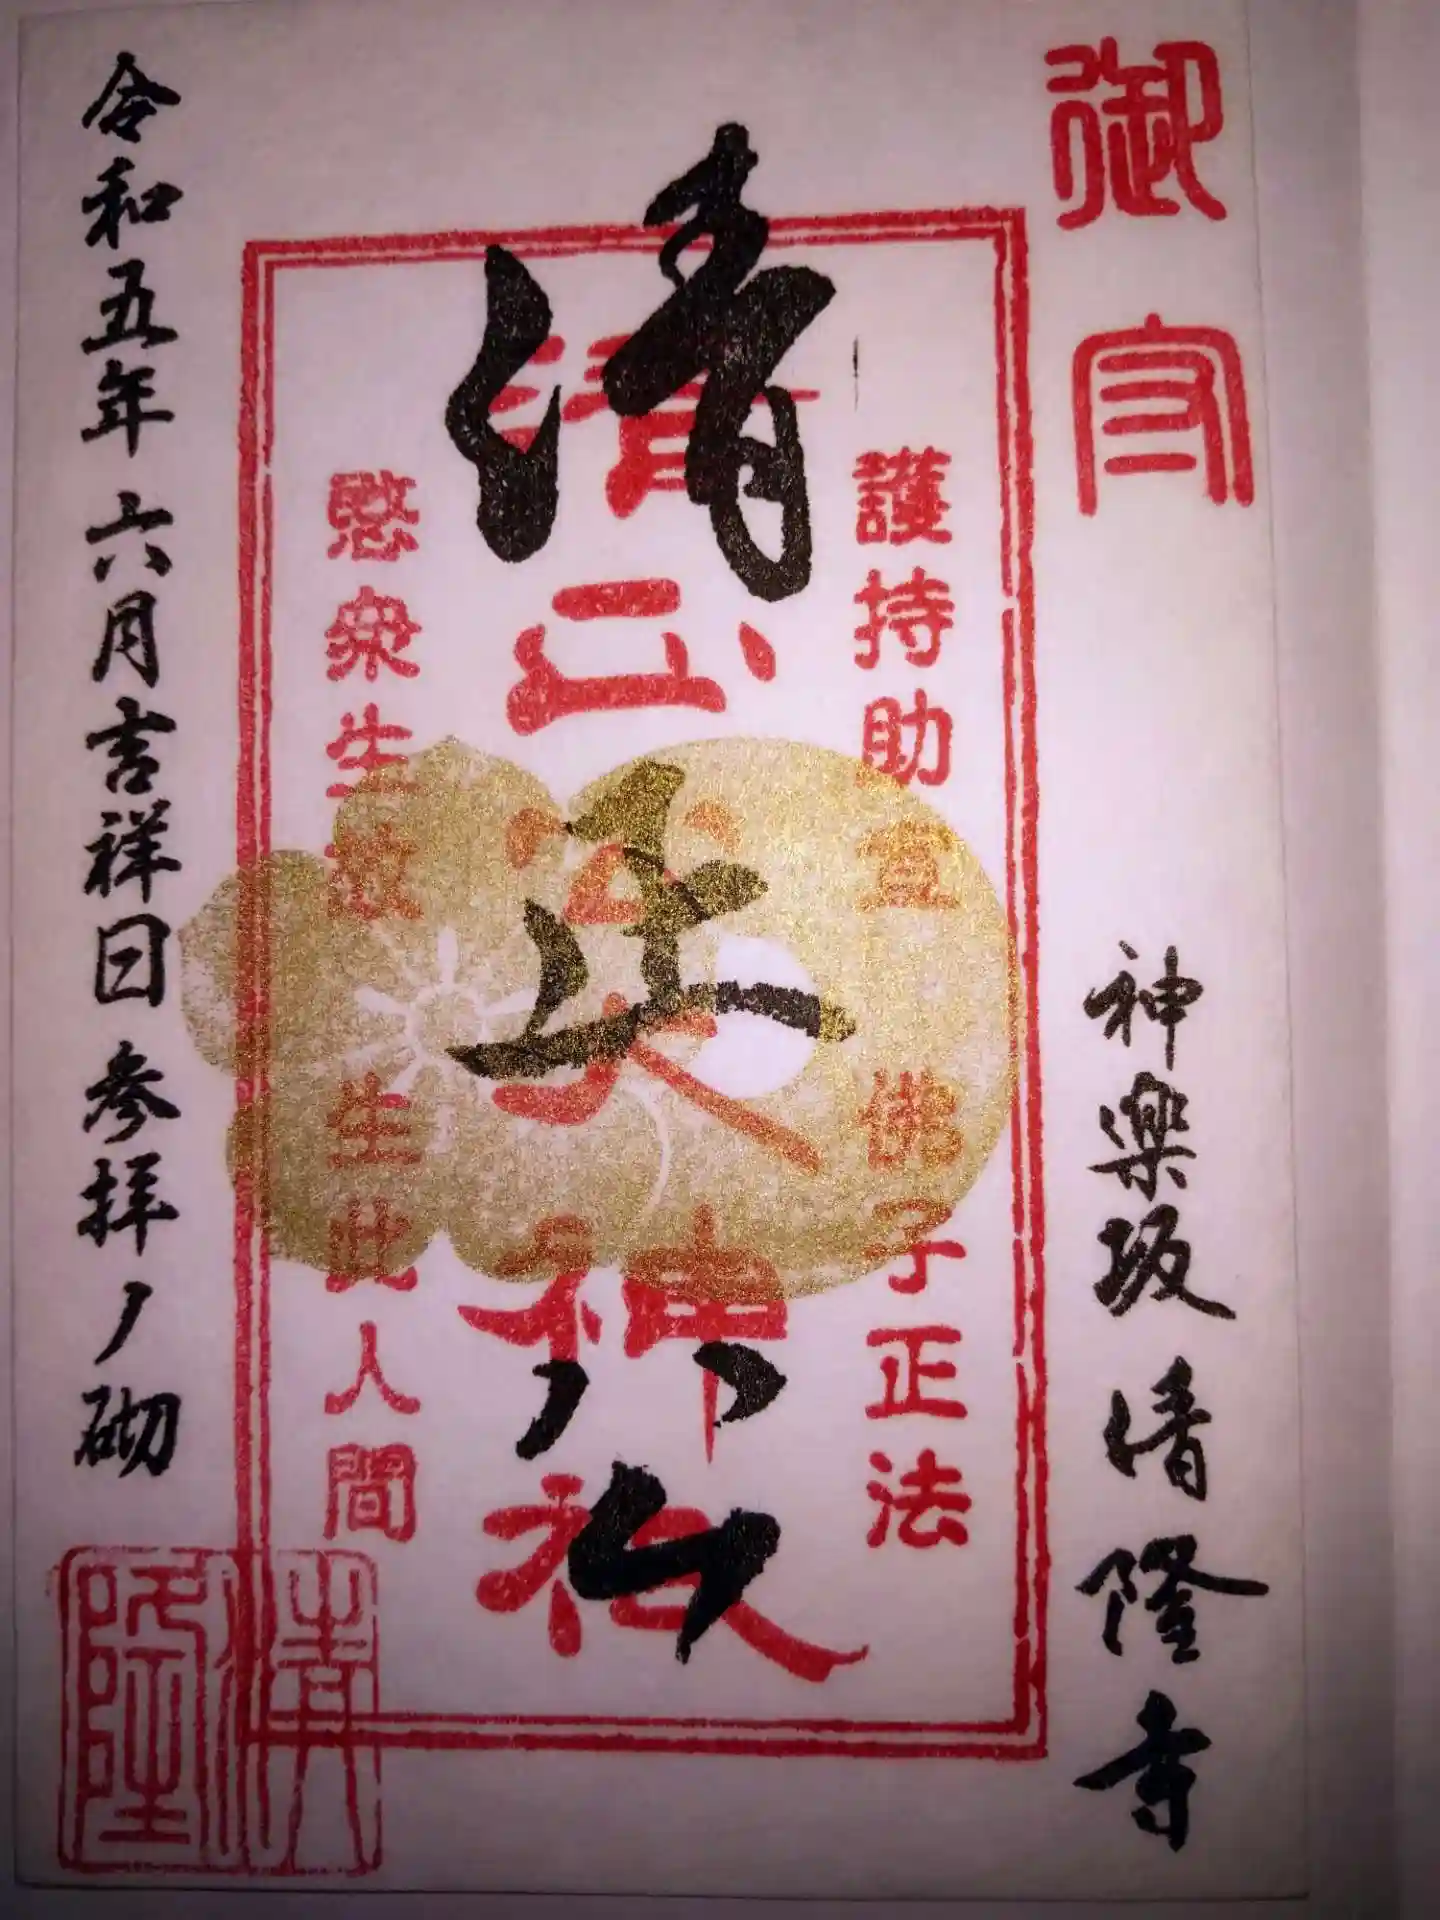 御守
神楽坂清隆寺
護持助宣佛子正法
清正公大神祇
清正公
愍衆生故生此人間
令和五年六月吉祥日参拝ノ砌
清隆